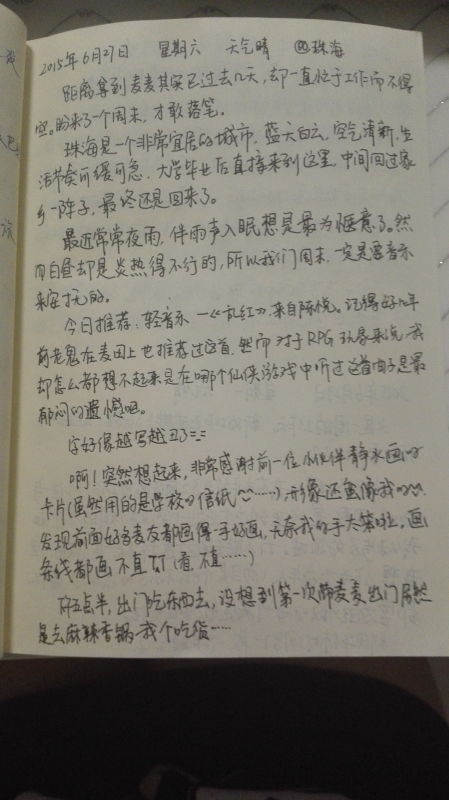 2015年6月27日 星期六 天气晴 @珠海
距离拿到麦麦其实已过去几天,却一直忙于工作而不得
空。盼来了个周末,才敢落笔。
珠海是一个非常宜居的城市,蓝天白云,空气清新,生
活节奏可缓可急,大学毕业后直接来到这里,中间回过家
乡一阵子,最终还是回来了。
最近常常夜雨,伴雨声入眠想是最为惬意了。然
而白昼却是炎热得不行的,所以我们周末,一定是要音乐
来安抚的。
今日推荐:轻音乐—《乱红》,来自陈悦。记得好几年
前老鬼在麦田上也推荐过这首,然而对于RPG玩家来说,我
却怎么都想不起来是在哪个仙侠游戏中听过这首曲子是最
郁闷的遗憾吧。
字好像越写越丑了=.=
啊!突然想起来,非常感谢前一位小伙伴静水画的
卡片(虽然用的是学校的信纸……)形像还蛮像我的
发现前面好多麦友都画得一手好画,无奈我的手太笨啦,画
条线都画不直TT(看,不直……)
下午五点半,出门吃东西去,没想到第一次带麦麦出门居然
是去麻辣香锅,我个吃货……